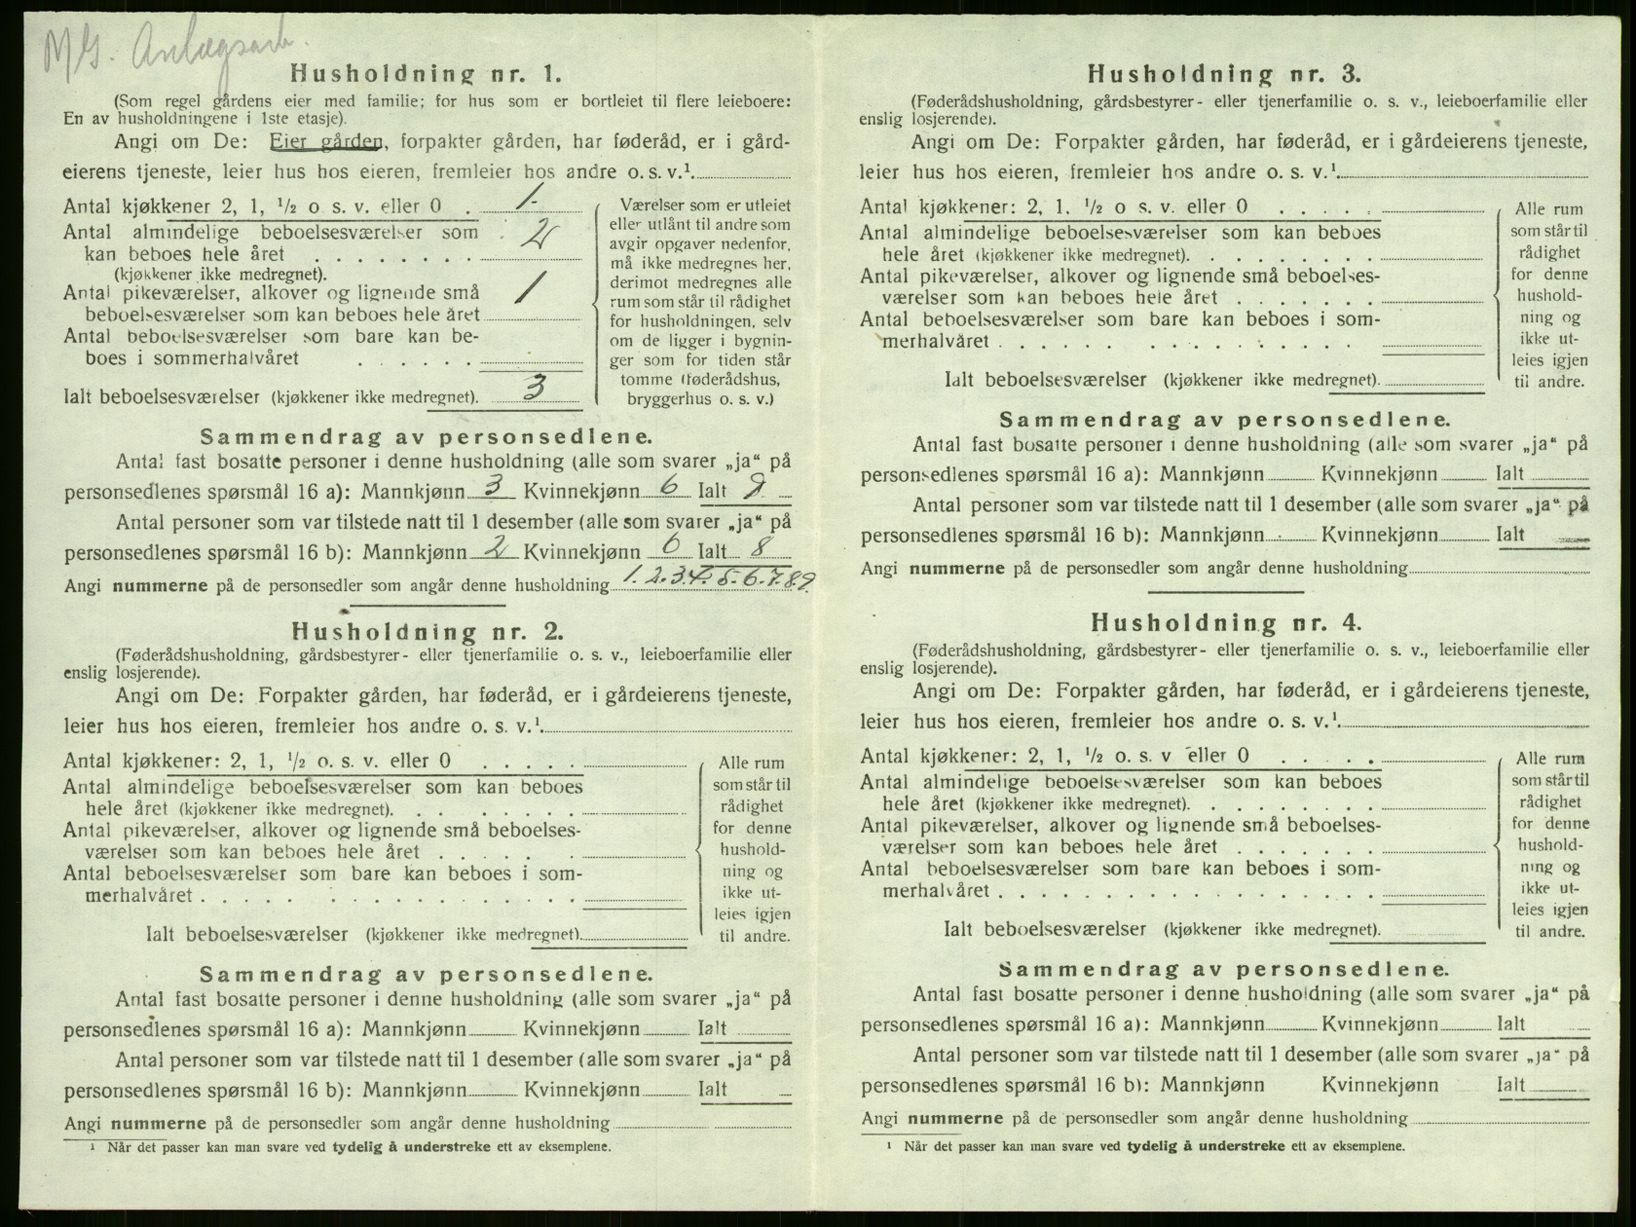 M/G. Anlægsarb.
Husholdning nr. 1.
(Som regel gårdens eier med familie; for hus som er bortleiet til flere leieboere:
En av husholdningene i 1ste etasje).
Angi om De: Eier gården, forpakter gården, har føderåd, er i gård-
eierens tjeneste, leier hus hos eieren, fremleier hos andre o. s. v.¹
Antal kjøkkener 2, 1, ½ o s. v. eller 0 . 1.
Antal almindelige beboelsesværelser som
kan beboes hele året . . . . . . . . 2
(kjøkkener ikke medregnet).
Antal pikeværelser, alkover og lignende små
beboelsesværelser som kan beboes hele året 1
Antal beboelsesværelser som bare kan be-
boes i sommerhalvåret . . . . . .
Ialt beboelsesværelser (kjøkkener ikke medregnet). 3
Værelser som er utleiet
eller utlånt til andre som
avgir opgaver nedenfor,
må ikke medregnes her,
derimot medregnes alle
rum som står til rådighet
for husholdningen, selv
om de ligger i bygnin-
ger som for tiden står
tomme (føderådshus,
bryggerhus o. s. v.)
Sammendrag av personsedlene.
Antal fast bosatte personer i denne husholdning (alle som svarer „ja“ på
personsedlenes spørsmål 16 a): Mannkjønn 3 Kvinnekjønn 6 Ialt 9
Antal personer som var tilstede natt til 1 desember (alle som svarer „ja“ på
personsedlenes spørsmål 16 b): Mannkjønn 2 Kvinnekjønn 6 Ialt 8
Angi nummerne på de personsedler som angår denne husholdning 1. 2. 3. 4. 5. 6. 7. 8. 9.
Husholdning nr. 2.
(Føderådshusholdning, gårdsbestyrer- eller tjenerfamilie o. s. v., leieboerfamilie eller
enslig losjerende).
Angi om De: Forpakter gården, har føderåd, er i gårdeierens tjeneste,
leier hus hos eieren, fremleier hos andre o. s. v.¹
Antal kjøkkener: 2, 1, ½ o. s. v. eller 0 . . . . .
Antal almindelige beboelsesværelser som kan beboes
hele året (kjøkkener ikke medregnet). . . . . . . .
Antal pikeværelser, alkover og lignende små beboelses-
værelser som kan beboes hele året . . . . . .
Antal beboelsesværelser som bare kan beboes i som-
merhalvåret . . . . . . . . . . . . . . . .
Ialt beboelsesværelser (kjøkkener ikke medregnet).
Alle rum
som står til
rådighet
for denne
hushold-
ning og
ikke ut-
leies igjen
til andre.
Sammendrag av personsedlene.
Antal fast bosatte personer i denne husholdning (alle som svarer „ja“ på
personsedlenes spørsmål 16 a): Mannkjønn Kvinnekjønn Ialt
Antal personer som var tilstede natt til 1 desember (alle som svarer „ja“ på
personsedlenes spørsmål 16 b): Mannkjønn Kvinnekjønn Ialt
Angi nummerne på de personsedler som angår denne husholdning
¹ Når det passer kan man svare ved tydelig å understreke ett av eksemplene.
Husholdning nr. 3.
(Føderådshusholdning, gårdsbestyrer- eller tjenerfamilie o. s. v., leieboerfamilie eller
enslig losjerende).
Angi om De: Forpakter gården, har føderåd, er i gårdeierens tjeneste,
leier hus hos eieren, fremleier hos andre o. s. v.¹
Antal kjøkkener: 2, 1, ½ o s. v. eller 0 . . . . .
Antal almindelige beboelsesværelser som kan beboes
hele året (kjøkkener ikke medregnet). . . . . . . . .
Antal pikeværelser, alkover og lignende små beboelses-
værelser som kan beboes hele året . . . . . . .
Antal beboelsesværelser som bare kan beboes i som-
merhalvåret . . . . . . . . . . . . . . . .
Ialt beboelsesværelser (kjøkkener ikke medregnet).
Alle rum
som står til
rådighet
for denne
hushold-
ning og
ikke ut-
leies igjen
til andre.
Sammendrag av personsedlene.
Antal fast bosatte personer i denne husholdning (alle som svarer „ja“ på
personsedlenes spørsmål 16 a): Mannkjønn Kvinnekjønn Ialt
Antal personer som var tilstede natt til 1 desember (alle som svarer „ja“ på
personsedlenes spørsmål 16 b): Mannkjønn Kvinnekjønn Ialt
Angi nummerne på de personsedler som angår denne husholdning
Husholdning nr. 4.
(Føderådshusholdning, gårdsbestyrer- eller tjenerfamilie o. s. v., leieboerfamilie eller
enslig losjerende).
Angi om De: Forpakter gården, har føderåd, er i gårdeierens tjeneste,
leier hus hos eieren, fremleier hos andre o. s. v.¹
Antal kjøkkener: 2, 1, ½ o. s. v eller 0 . . . . .
Antal almindelige beboelsesværelser som kan beboes
hele året (kjøkkener ikke medregnet). . . . . . . . .
Antal pikeværelser, alkover og lignende små beboelses-
værelser som kan beboes hele året . . . . . . .
Antal beboelsesværelser som bare kan beboes i som-
merhalvåret . . . . . . . . . . . . . . . . .
Ialt beboelsesværelser (kjøkkener ikke medregnet).
Alle rum
som står til
rådighet
for denne
hushold-
ning og
ikke ut-
leies igjen
til andre.
Sammendrag av personsedlene.
Antal fast bosatte personer i denne husholdning (alle som svarer „ja“ på
personsedlenes spørsmål 16 a): Mannkjønn Kvinnekjønn Ialt
Antal personer som var tilstede natt til 1 desember (alle som svarer „ja“ på
personsedlenes spørsmål 16 b): Mannkjønn Kvinnekjønn Ialt
Angi nummerne på de personsedler som angår denne husholdning
¹ Når det passer kan man svare ved tydelig å understreke ett av eksemplene.